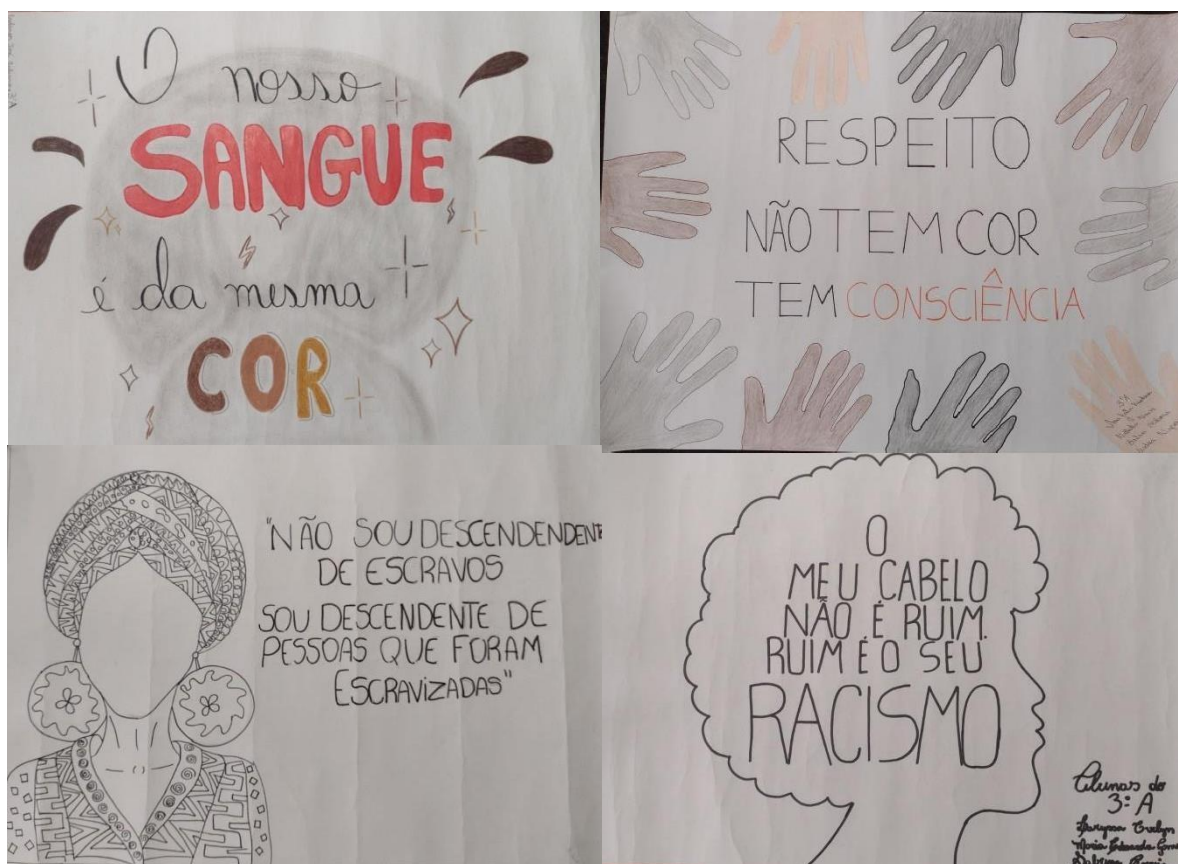 O nosso
SANGUE
é da mesma
COR
RESPEITO
NÃO TEM COR
TEM CONSCIÊNCIA
3ºA
"NÃO SOU DESCENDENDENTE
DE ESCRAVOS
SOU DESCENDENTE DE
PESSOAS QUE FORAM
ESCRAVIZADAS"
O
MEU CABELO
NÃO É RUIM.
RUIM É O SEU
RACISMO
Alunas do
3º A
Evelyn
Maria Eduarda